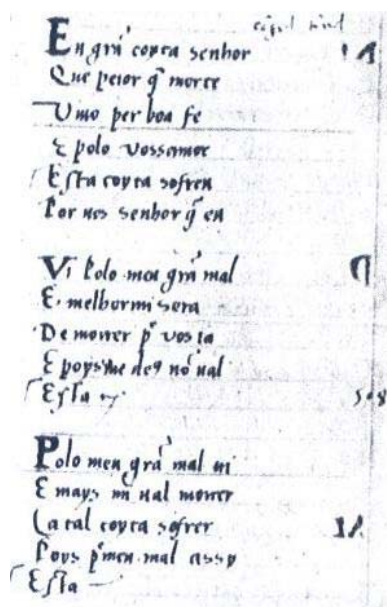 En grã coyta senhor
Que peior q̃ morte
Uivo per boa fe
E polo vossamor
Esta coyta sofren
Por vos senhor q̃ eu
Vi Polo meu grã mal
E melhor mi sera
De morrer pᵉ vos ia
E poys me deꝯ nõ ual
Esta
Polo meu grã mal ui
E mays mi ual morrer
Ca tal coyta sofrer
Poys pᵉ meu mal assy
Esta